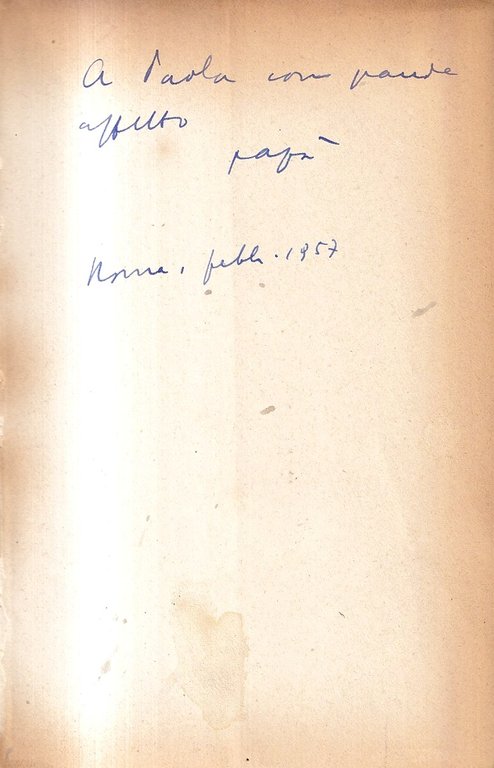 A Paola con grande
affetto
papà
Roma, febb. 1957